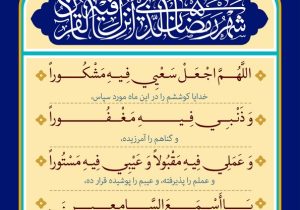 شهر رمضان الذی انزل فیه القرآن
اللَّهُمَّ اجْعَلْ سَعْيِي فِيهِ مَشْكُوراً
خدایا کوششم را در این ماه مورد سپاس،
وَ ذَنْبِي فِيهِ مَغْفُوراً
و گناهم را آمرزیده،
وَ عَمَلِي فِيهِ مَقْبُولاً وَ عَيْبِي فِيهِ مَسْتُوراً
و عملم را پذیرفته، و عیبم را پوشیده قرار ده،
يَا أَسْمَعَ السَّامِعِينَ